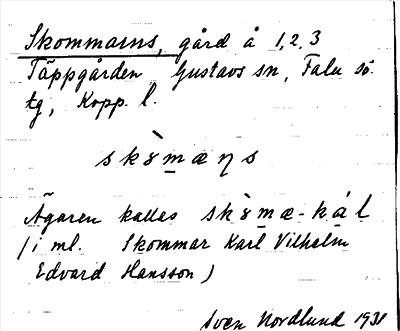 Skommarns, gård å 1, 2, 3
Täppgården Gustavs sn, Falu sö.
tg, Kopp. l.
skò̤mæɳs
Ägaren kallas skò̤mæ-kál
(i ml. Skommar Karl Vilhelm
Edvard Hansson)
Sven Nordlund 1931